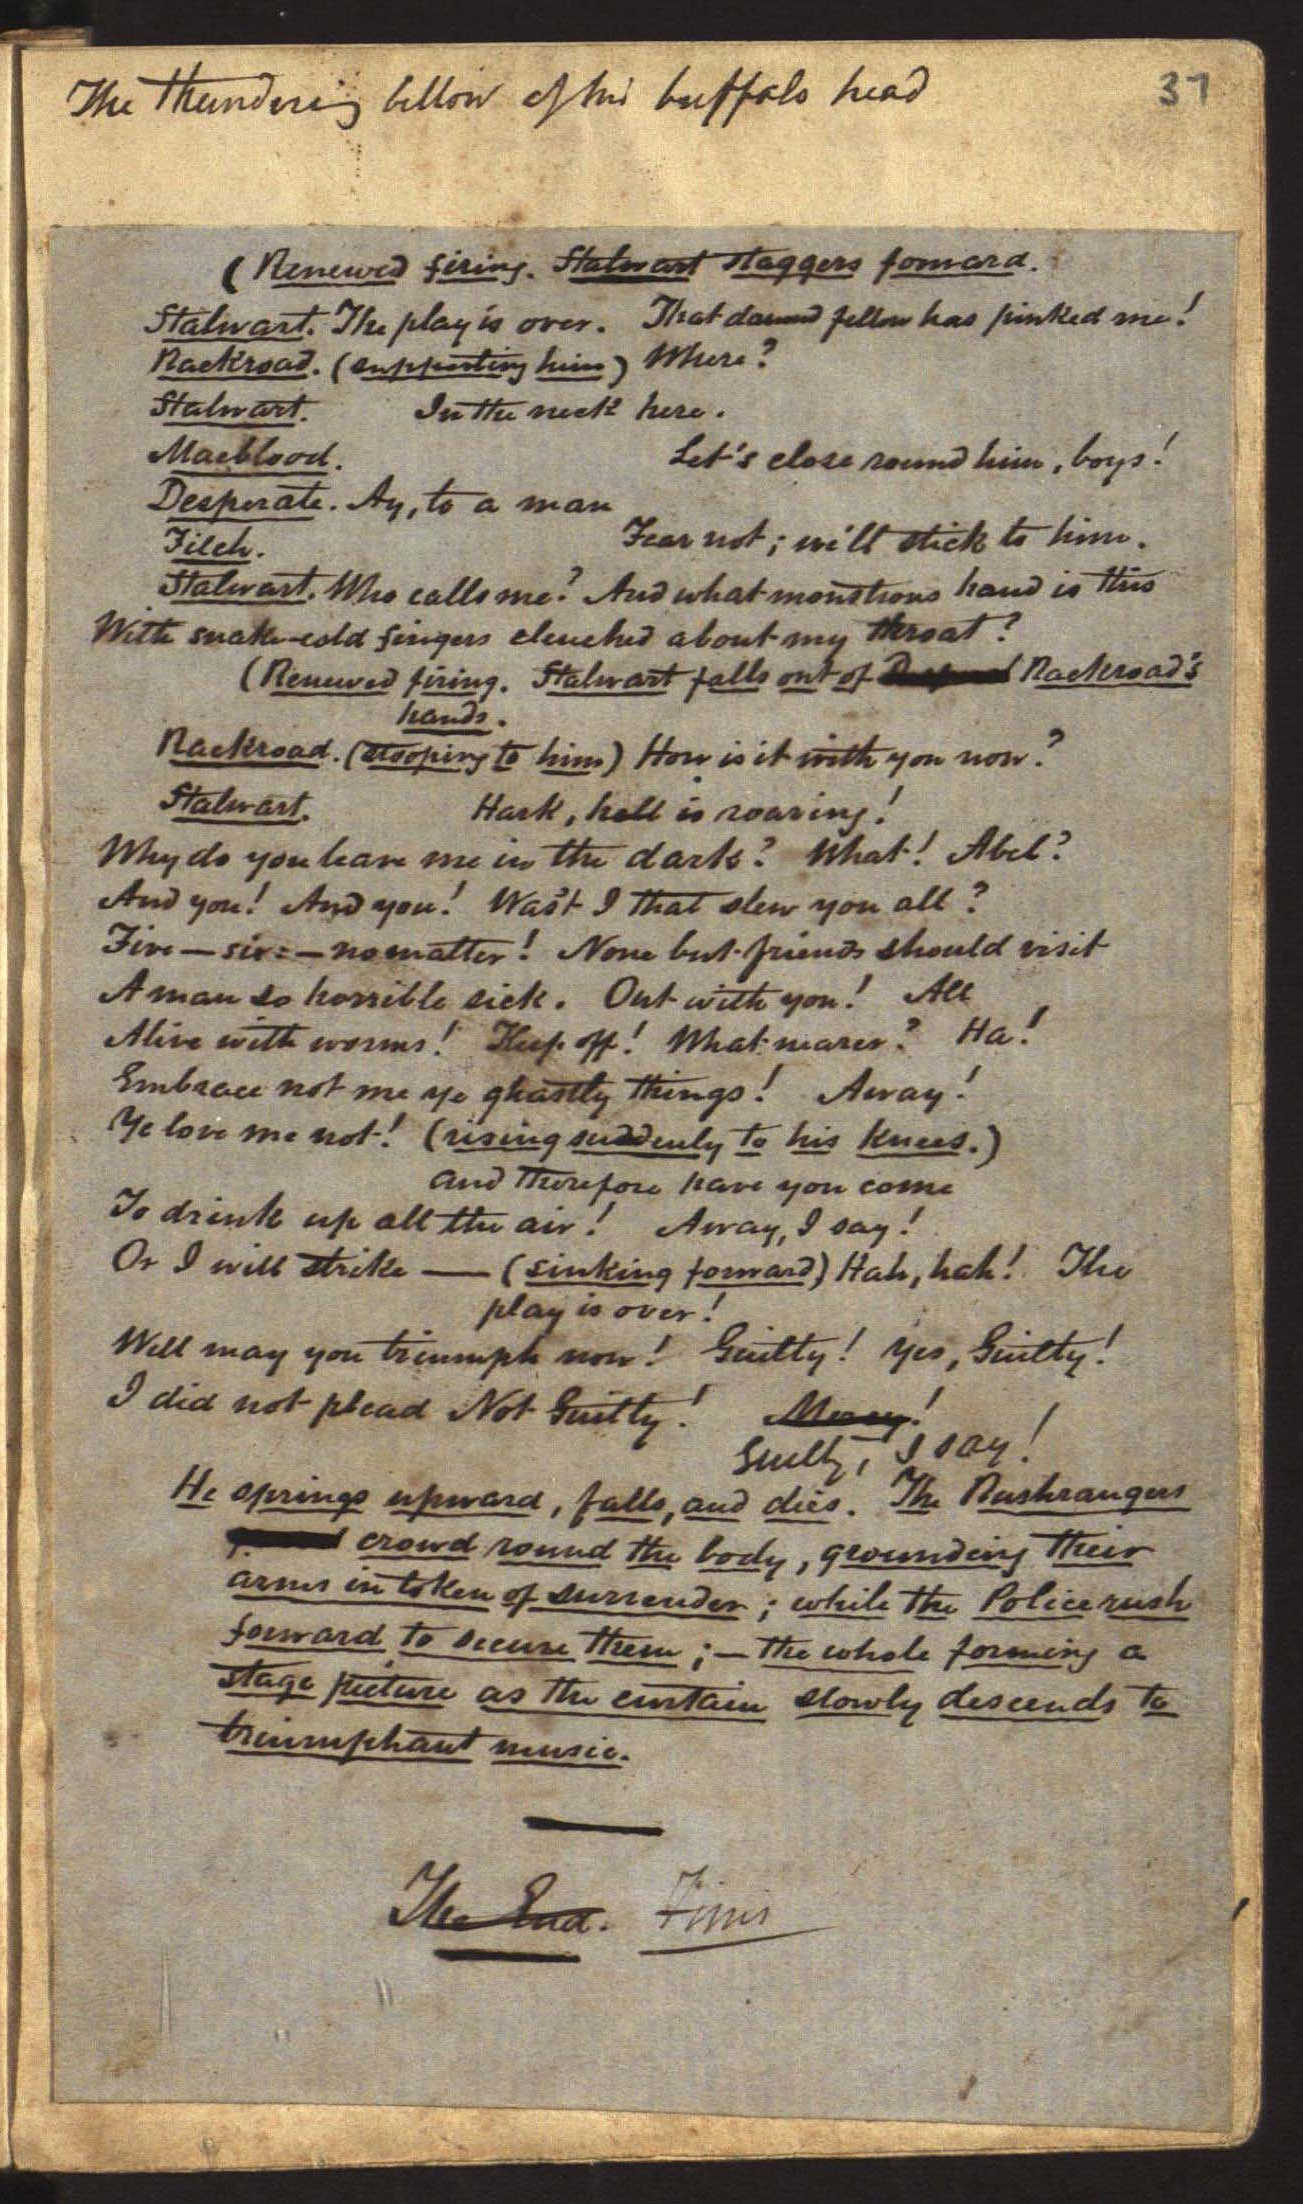 The thundering bellow of his buffalo head
37
(Renewed firing. Stalwart staggers forward.
Stalwart. The play is over. That damned fellow has pinked me!
Rackroad. (supporting him) Where?
Stalwart. In the neck here.
Macblood. Let's close round him, boys!
Desperate. Ay, to a man
Filch. Fear not; we'll stick to him.
Stalwart. Who calls me? And what monstrous hand is this
With snake-cold fingers clenched about my throat?
(Renewed firing. Stalwart falls out of Rackroad's
hands.
Rackroad. (stooping to him) How is it with you now?
Stalwart. Hark, hell is roaring!
Why do you leave me in the dark? What! Abel?
And you! And you! Wast I that slew you all?
Five—six—no matter! None but friends should visit
A man so horrible sick. Out with you! All
Alive with worms! Keep off! What nearer? Ha!
Embrace not me ye ghastly things! Away!
Ye love me not! (rising suddenly to his knees.)
and therefore have you come
To drink up all the air! Away, I say!
Or I will strike — (sinking forward) Hah, hah! The
play is over!
Well may you triumph now! Guilty! Yes, Guilty!
I did not plead Not Guilty! Mercy!
Guilty, I say!
He springs upward, falls, and dies. The Bushrangers
crowd round the body, grounding their
arms in token of surrender; while the Police rush
forward to secure them;—the whole forming a
stage picture as the curtain slowly descends to
triumphant music.
The End. Finis